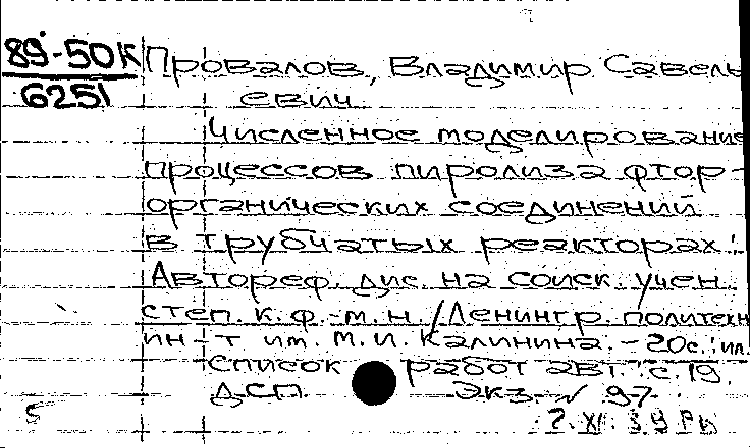 89-50К Провалов, Владимир Савель
6251 евич
Численное моделирование
процессов пиролиза фтор-
органических соединений
в трубчатых реакторах:
Автореф. дис. на соиск. учен.
степ. к.ф.-м.н. / Ленингр. политехн
ин-т им. М.И. Калинина. - 20с.: ил
Список работ авт.: с.19.
ДСП. Экз. № 97